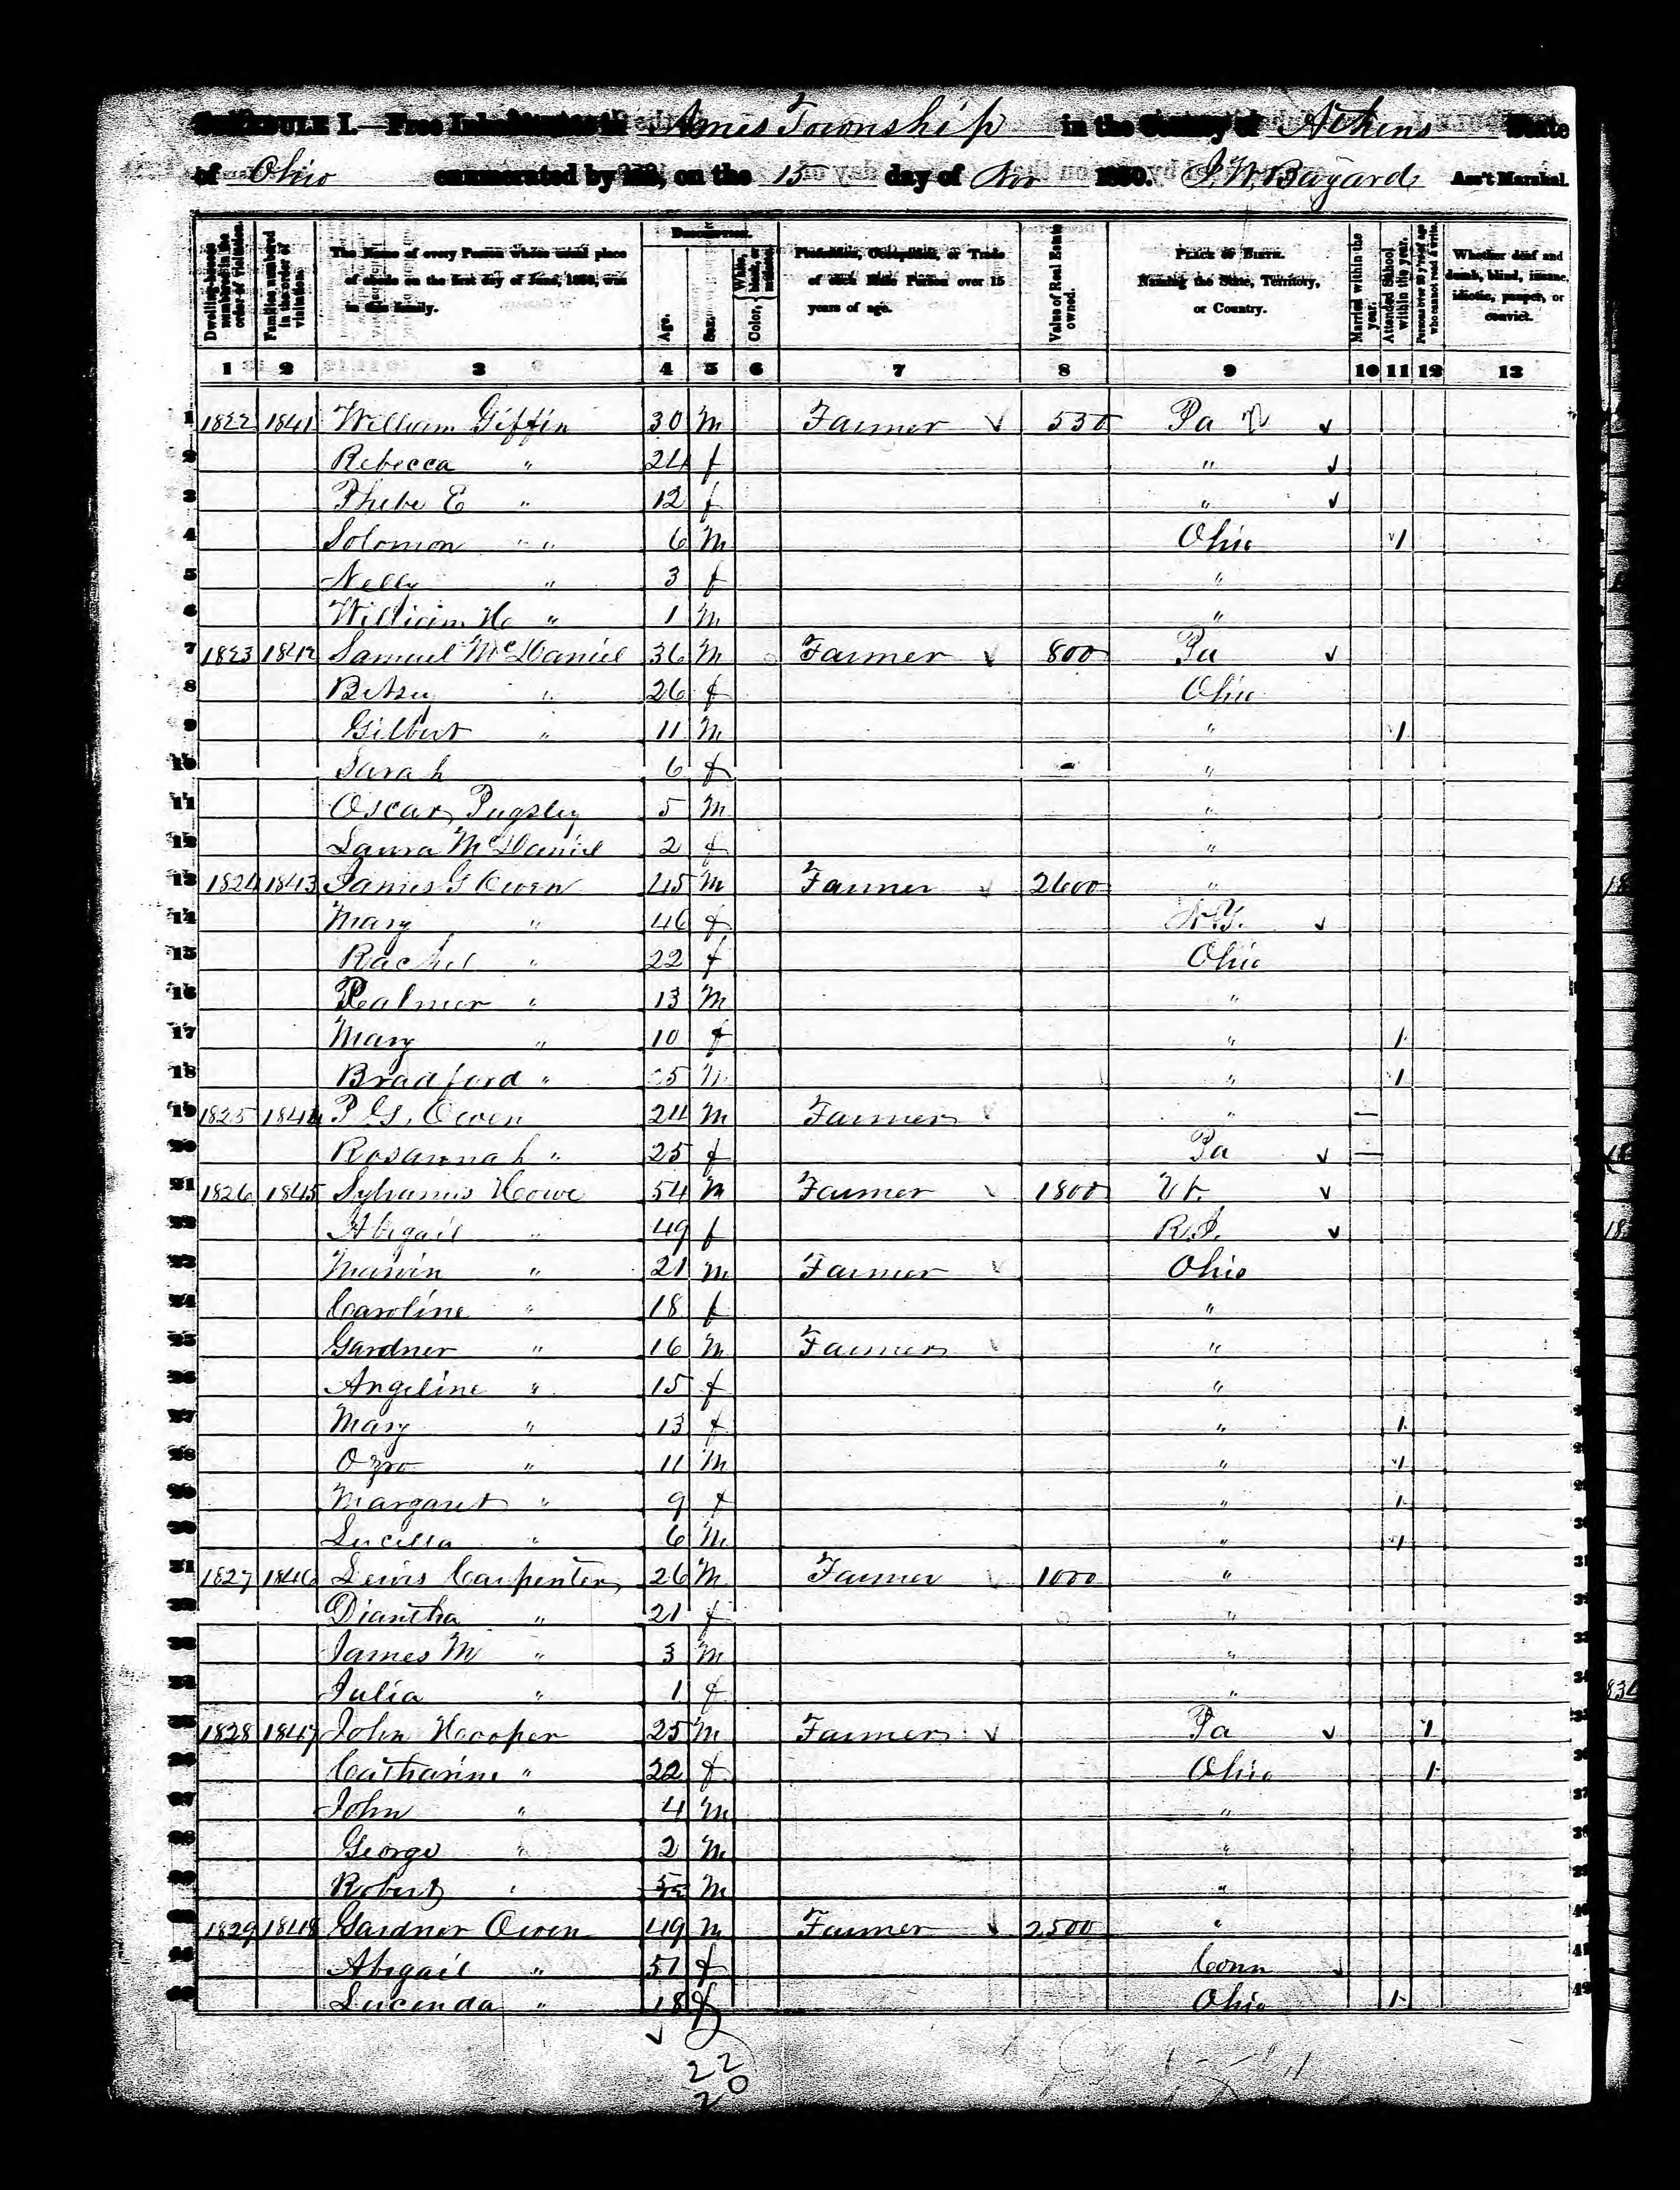 SCHEDULE I.—Free Inhabitants in Ames Township in the County of Athens State
of Ohio enumerated by me, on the 15 day of Nov 1850. J. W. Bayard Ass't Marshal.
Dwelling-houses numbered in the order of visitation.
Families numbered in the order of visitation.
The Name of every Person whose usual place of abode on the first day of June, 1850, was in this family.
Description.
Age.
Sex.
Color, White, black, or mulatto.
Profession, Occupation, or Trade of each Male Person over 15 years of age.
Value of Real Estate owned.
Place of Birth. Naming the State, Territory, or Country.
Married within the year.
Attended School within the year.
Persons over 20 y'rs of age who cannot read & write.
Whether deaf and dumb, blind, insane, idiotic, pauper, or convict.
1 2 3 4 5 6 7 8 9 10 11 12 13
1 1822 1841 William Giffin 30 M Farmer 530 Pa
2 Rebecca " 24 f "
3 Phebe E " 12 f "
4 Solomon " 6 M Ohio 1
5 Nelly " 3 f "
6 William H " 1 M "
7 1823 1842 Samuel McDaniel 36 M Farmer 800 Pa
8 Betsy " 26 f Ohio
9 Gilbert " 11 M " 1
10 Sarah 6 f "
11 Oscar Pugsley 5 M "
12 Laura McDaniel 2 f "
13 1824 1843 James G Owen 45 M Farmer 2600 "
14 Mary " 46 f N.Y.
15 Rachel " 22 f Ohio
16 Palmer " 13 M "
17 Mary " 10 f " 1
18 Bradford " 5 M " 1
19 1825 1844 P. G. Owen 24 M Farmer " —
20 Rosannah " 25 f Pa —
21 1826 1845 Sylvanus Howe 54 M Farmer 1800 Vt.
22 Abigail " 49 f R.I.
23 Marvin " 21 M Farmer Ohio
24 Caroline " 18 f "
25 Gardner " 16 M Farmer "
26 Angeline " 15 f "
27 Mary " 13 f " 1
28 Ozro " 11 M " 1
29 Margaret " 9 f " 1
30 Lucella " 6 M " 1
31 1827 1846 Lewis Carpenter 26 M Farmer 1000 "
32 Diantha " 21 f "
33 James M " 3 M "
34 Julia " 1 f "
35 1828 1847 John Hooper 25 M Farmer Pa 1
36 Catharine " 22 f Ohio 1
37 John " 4 M "
38 George " 2 M "
39 Robert " M "
40 1829 1848 Gardner Owen 49 M Farmer 2500 "
41 Abigail " 51 f Conn
42 Lucenda " 18 f Ohio 1
22
20